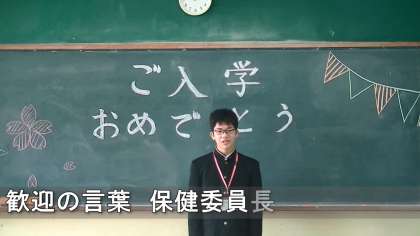 ご入学
おめでとう
歓迎の言葉 保健委員長